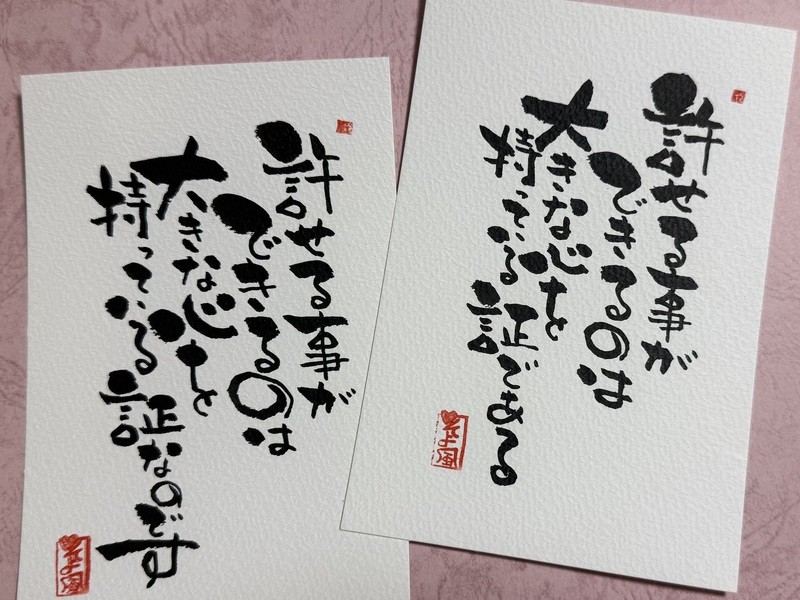 許せる事が
できるのは
大きな心を
持っている証なのです
そよ風
許せる事が
できるのは
大きな心を
持っている証である
そよ風